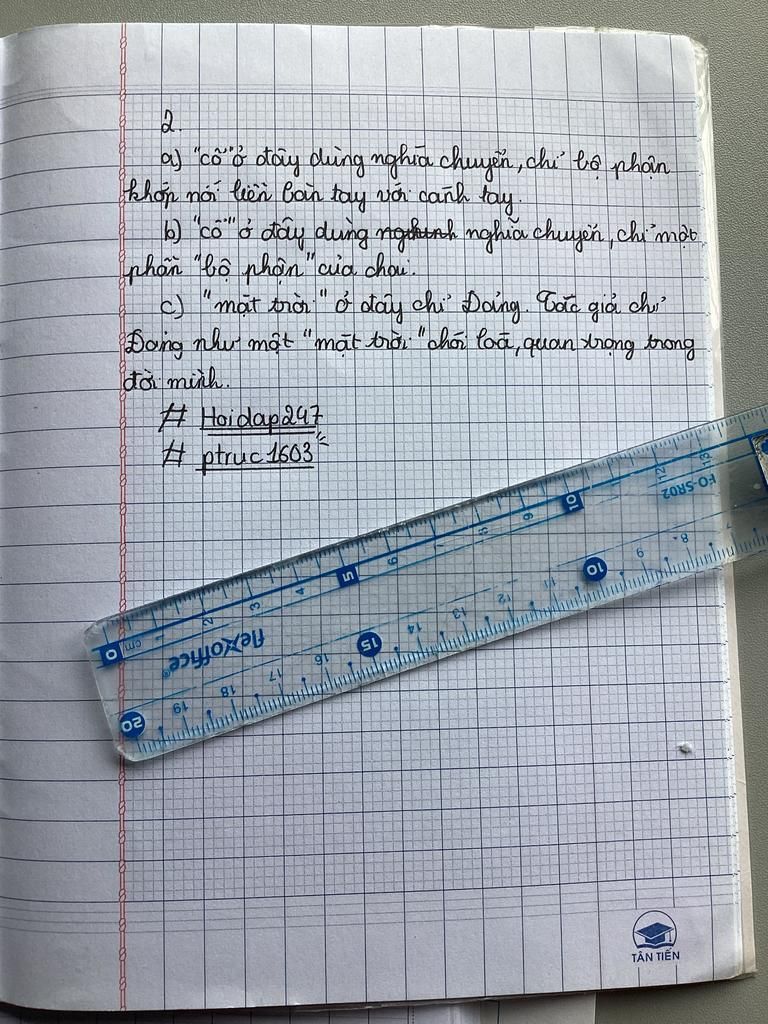 2.
a) "cổ" ở đây dùng nghĩa chuyển, chỉ bộ phận
khớp nối liền bàn tay với cánh tay.
b) "cổ" ở đây dùng nghĩa chuyển, chỉ một
phần "bộ phận" của chai.
c) "mặt trời" ở đây chỉ Đảng. Tác giả chỉ
Đảng như một "mặt trời" chói loà, quan trọng trong
đời mình.
# Hoidap247
# ptruc1603
FO-SR02
0 cm 1 2 3 4 5 6 7 8 9 10 12 13
flexoffice®
20 19 18 17 16 15 14 13 12 11 10 9 8 7
TÂN TIẾN